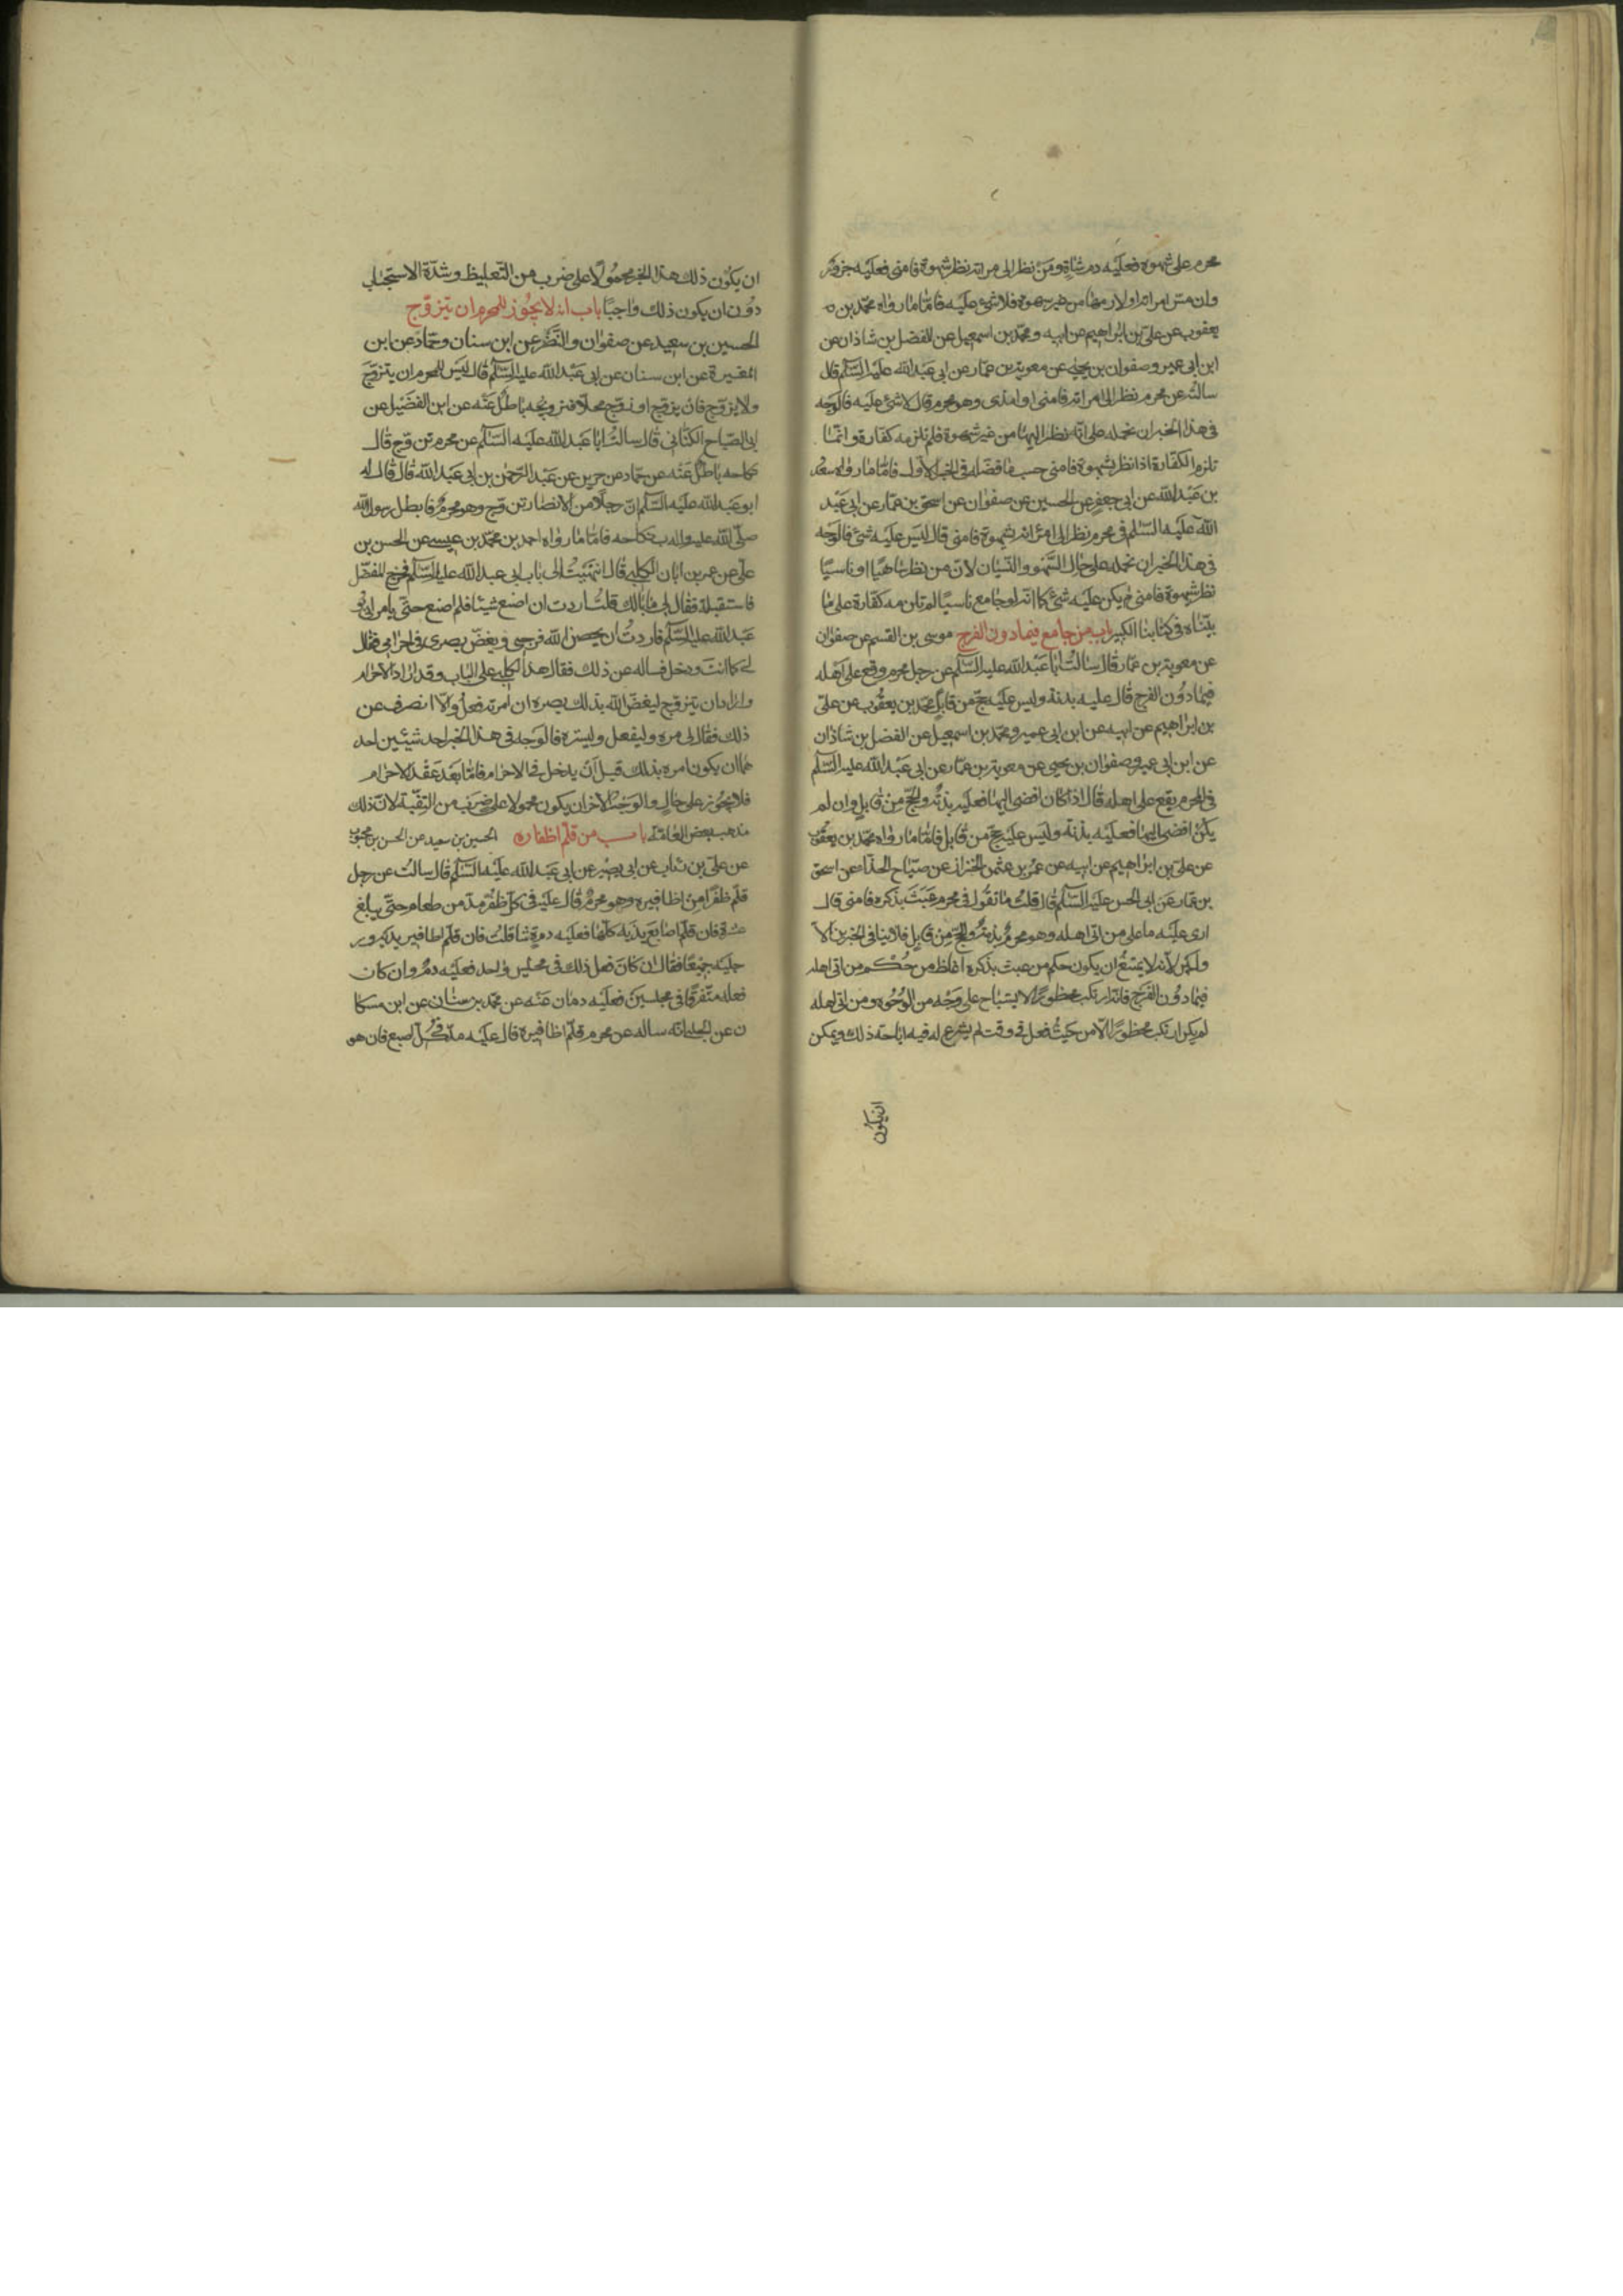 محرم على شهوة فعليه دم شاة ومن نظر الى امراته نظر شهوة فامنى فعليه جزور
وان مس امراته او لازمها من غير شهوة فلا شيء عليه فاما ما رواه محمد بن
يعقوب عن علي بن ابراهيم عن ابيه ومحمد بن اسمعيل عن الفضل بن شاذان عن
ابن ابي عمير وصفوان بن يحيى عن معوية بن عمار عن ابي عبد الله عليه السلم قال
سالته عن محرم نظر الى امراته فامنى او امذى وهو محرم قال لا شئ عليه فالوجه
في هذا الخبر ان نحمله على انه نظر اليها من غير شهوة فلم تلزمه كفارة وانما
تلزم الكفارة اذا نظر بشهوة فامنى حسب ما فصله في الخبر الاول فاما ما رواه سعد
بن عبد الله عن ابي جعفر عن الحسين عن صفوان عن اسحق بن عمار عن ابي عبد
الله عليه السلم في محرم نظر الى امراته بشهوة فامنى قال ليس عليه شئ فالوجه
في هذا الخبر ان نحمله على حال السهو والنسيان لان من نظر ساهيا او ناسيا
نظر شهوة فامنى لم يكن عليه شئ كما انه لو جامع ناسيا لم تلزمه كفارة على ما
بيناه في كتابنا الكبير باب من جامع فيما دون الفرج موسى بن القسم عن صفوان
عن معوية بن عمار قال سالت ابا عبد الله عليه السلم عن رجل محرم وقع على اهله
فيما دون الفرج قال عليه بدنة وليس عليه حج من قابل محمد بن يعقوب عن علي
بن ابراهيم عن ابيه عن ابن ابي عمير ومحمد بن اسمعيل عن الفضل بن شاذان
عن ابن ابي عمير وصفوان بن يحيى عن معوية بن عمار عن ابي عبد الله عليه السلم
في المحرم يقع على اهله قال اذا كان افضى اليها فعليه بدنة والحج من قابل وان لم
يكن افضى اليها فعليه بدنة وليس عليه حج من قابل فاما ما رواه محمد بن يعقوب
عن علي بن ابراهيم عن ابيه عن عمرو بن عثمن الخزاز عن صباح الحذاء عن اسحق
بن عمار عن ابي الحسن عليه السلم قال قلت ما تقول في محرم عبث بذكره فامنى قال
ارى عليه ما على من اتى اهله وهو محرم بدنة والحج من قابل فلا ينافي الخبرين الا
ولين لانه لا يمتنع ان يكون حكم من عبث بذكره اغلظ من حكم من اتى اهله
فيما دون الفرج فانه ارتكب محظورا لا يستباح على وجه من الوجوه ومن اتى اهله
لم يكن ارتكب محظورا الا من حيث فعل في وقت لم يشرع له فيه اباحة ذلك ويمكن
ان يكون
ان يكون ذلك هذا الخبر محمولا على ضرب من التغليظ وشدة الاستحباب
دون ان يكون ذلك واجبا باب انه لا يجوز للمحرم ان يتزوج
الحسين بن سعيد عن صفوان والنضر عن ابن سنان وحماد عن ابن
المغيرة عن ابن سنان عن ابي عبد الله عليه السلم قال ليس للمحرم ان يتزوج
ولا يزوج فان يزوج او زوج محلا فتزويجه باطل عنه عن ابن الفضيل عن
ابي الصباح الكناني قال سالت ابا عبد الله عليه السلم عن محرم تزوج قال
نكاحه باطل عنه عن حماد عن حريز عن عبد الرحمن بن ابي عبد الله قال قال له
ابو عبد الله عليه السلم ان رجلا من الانصار تزوج وهو محرم فابطل رسول الله
صلى الله عليه واله نكاحه فاما ما رواه احمد بن محمد بن عيسى عن الحسن بن
علي عن عمر بن ابان الكلبي قال انتهيت الى باب ابي عبد الله عليه السلم فخرج المفضل
فاستقبلته فقال لي ما بالك قلت اردت ان اصنع شيئا فلم اصنع حتى يامرني ابو
عبد الله عليه السلم فاردت ان يحصن الله فرجي ويغض بصري في احرامي فقال
لي كما انت ودخل فساله عن ذلك فقال هذا الكلبي على الباب وقد اراد الاحرام
واراد ان يتزوج ليغض الله بذلك بصره ان امرته فعل والا انصرف عن
ذلك فقال لي مره وليفعل وليستره فالوجه في هذا الخبر احد شيئين احد
هما ان يكون امره بذلك قبل ان يدخل في الاحرام فاما بعد عقد الاحرام
فلا يجوز على حال والوجه الآخر ان يكون محمولا على ضرب من التقية لان ذلك
مذهب بعض العامة باب من قلم اظفاره الحسين بن سعيد عن الحسن بن محبوب
عن علي بن رئاب عن ابي بصير عن ابي عبد الله عليه السلم قال سالت عن رجل
قلم ظفرا من اظافيره وهو محرم قال عليه في كل ظفر مد من طعام حتى يبلغ
عشرة فان قلم اصابع يديه كلها فعليه دم شاة قلت فان قلم اظافير يديه ور
جليه جميعا فقال ان كان فعل ذلك في مجلس واحد فعليه دم وان كان
فعله متفرقا في مجلسين فعليه دمان عنه عن محمد بن سنان عن ابن مسكا
ن عن الحلبي انه ساله عن محرم قلم اظافيره قال عليه مد في كل اصبع فان هو